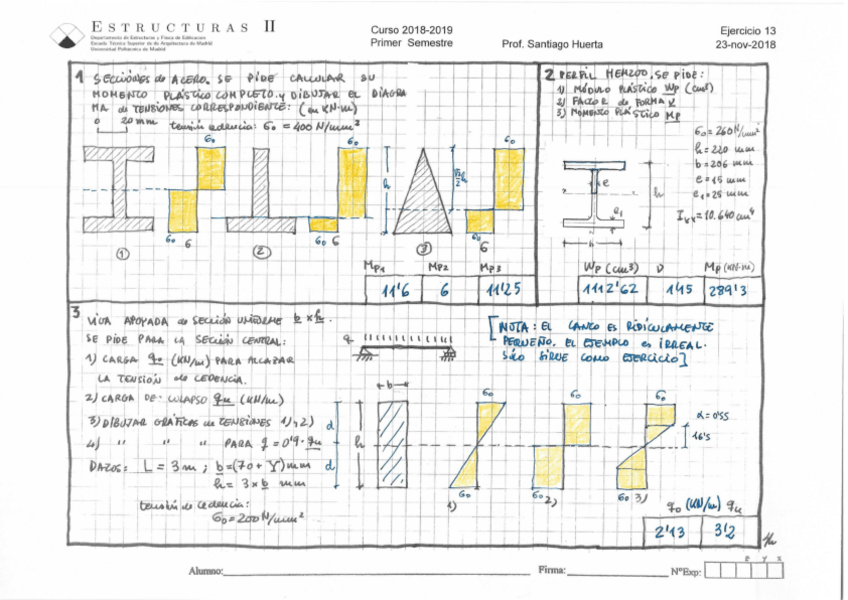 ESTRUCTURAS II
Departamento de Estructuras y Física de Edificación
Escuela Técnica Superior de Arquitectura de Madrid
Universidad Politécnica de Madrid
Curso 2018-2019
Primer Semestre
Prof. Santiago Huerta
Ejercicio 13
23-nov-2018
1 SECCIONES de ACERO. SE PIDE CALCULAR SU
MOMENTO PLÁSTICO COMPLETO y DIBUJAR EL DIAGRA
MA de TENSIONES CORRESPONDIENTE: (en KN·m)
0 20 mm tensión cedencia: σ₀ = 400 N/mm²
σ₀ σ₀ h σ₀
σ₀ 6 σ₀ 6 σ₀ 6
1 2 3
Mp1 Mp2 Mp3
11'6 6 11'25
2 PERFIL HEM200. SE PIDE:
1) MÓDULO PLÁSTICO Wp (cm³)
2) FACTOR de FORMA
3) MOMENTO PLÁSTICO Mp
σ₀ = 260 N/mm²
h = 220 mm
b = 206 mm
e = 15 mm
e₁ = 25 mm
Ixx = 10.640 cm⁴
e h
e₁
Wp (cm3) Mp (KN·m)
1112'62 1'15 289'3
3 VIGA APOYADA de SECCIÓN UNIFORME b x h.
SE PIDE PARA LA SECCIÓN CENTRAL:
1) CARGA q₀ (KN/m) PARA ALCANZAR
LA TENSIÓN de CEDENCIA.
2) CARGA DE COLAPSO qu (KN/m)
3) DIBUJAR GRÁFICAS de TENSIONES 1) y 2)
4) " " " PARA q = 0'9 · qu
DATOS: L = 3 m ; b = (70 + Y) mm
h = 3 x b mm
tensión de cedencia:
σ₀ = 200 N/mm²
q
[NOTA: EL CANTO ES RIDÍCULAMENTE
PEQUEÑO. EL EJEMPLO es IRREAL.
SÓLO SIRVE COMO EJERCICIO]
b
d h d
σ₀ σ₀ σ₀
α = 0'55
16'5
σ₀ σ₀ σ₀
1) 2) 3)
q₀ (KN/m) qu
2'13 3'2
Alumno: Firma: NºExp: